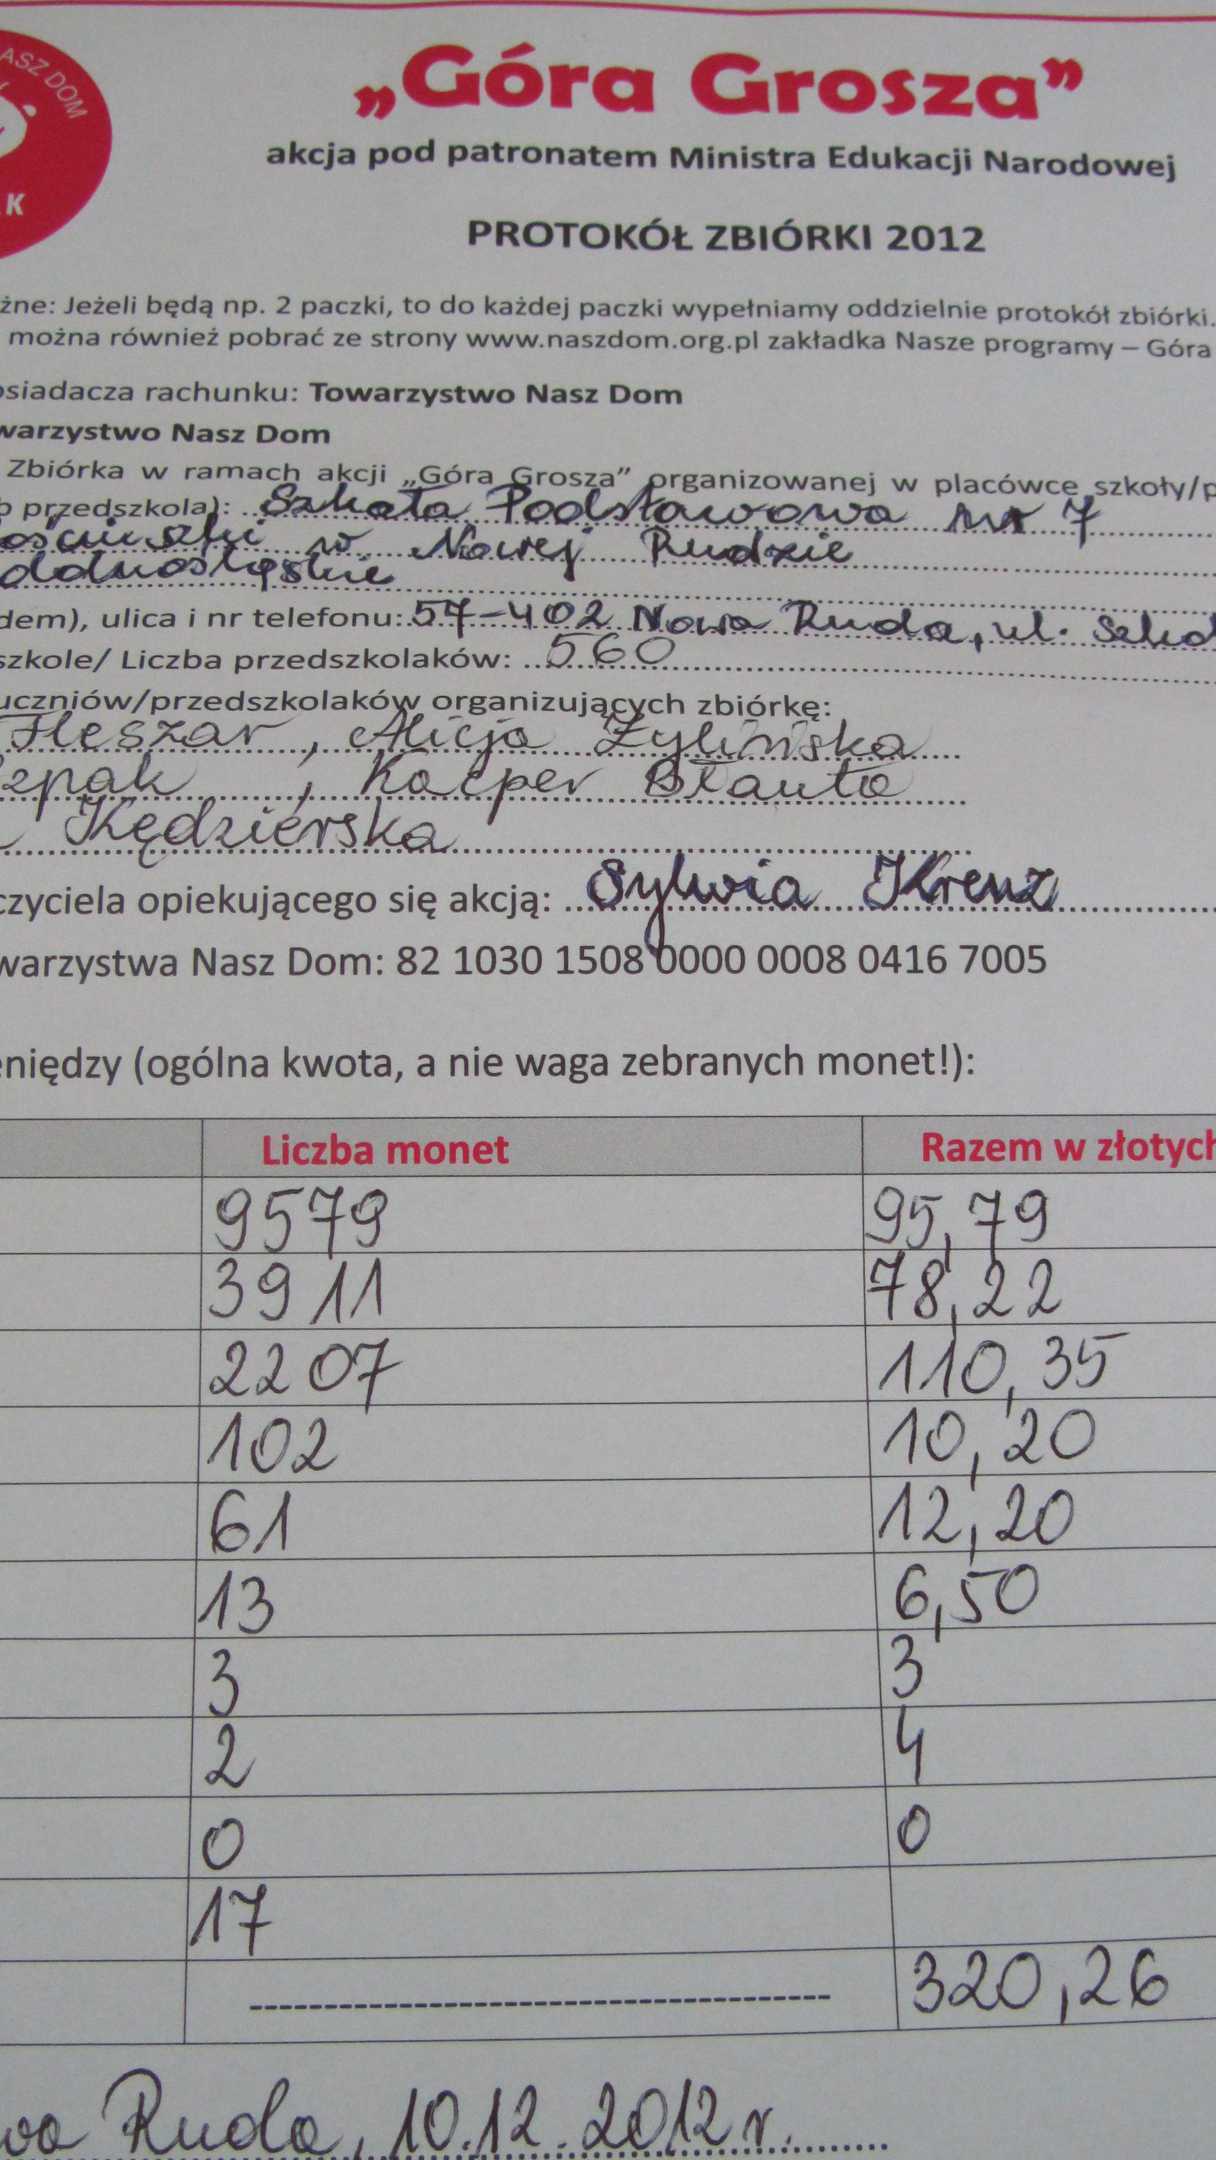 ASZ DOM
K
„Góra Grosza”
akcja pod patronatem Ministra Edukacji Narodowej
PROTOKÓŁ ZBIÓRKI 2012
żne: Jeżeli będą np. 2 paczki, to do każdej paczki wypełniamy oddzielnie protokół zbiórki.
można również pobrać ze strony www.naszdom.org.pl zakładka Nasze programy – Góra
osiadacza rachunku: Towarzystwo Nasz Dom
warzystwo Nasz Dom
Zbiórka w ramach akcji „Góra Grosza” organizowanej w placówce szkoły/p
b przedszkola): Szkoła Podstawowa nr 7
ościuszki w Nowej Rudzie
dolnośląskie
dem), ulica i nr telefonu: 57-402 Nowa Ruda, ul. Szko
szkole/ Liczba przedszkolaków: 560
uczniów/przedszkolaków organizujących zbiórkę:
Fleszar, Alicja Żylińska
zepak, Kacper Błauto
Kędzierska
czyciela opiekującego się akcją: Sylwia Krenz
warzystwa Nasz Dom: 82 1030 1508 0000 0008 0416 7005
eniędzy (ogólna kwota, a nie waga zebranych monet!):
Liczba monet Razem w złotych
9579 95,79
3911 78,22
2207 110,35
102 10,20
61 12,20
13 6,50
3 3
2 4
0 0
17
320,26
wa Ruda, 10.12.2012r.